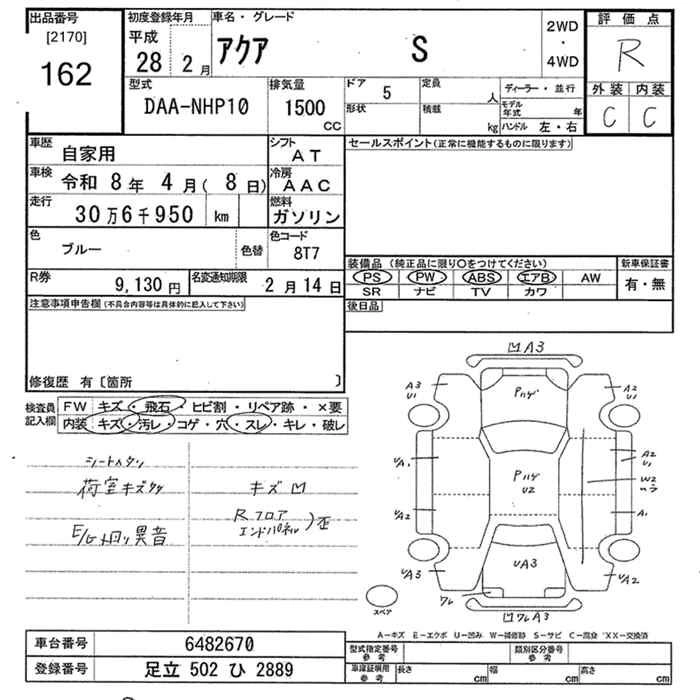 出品番号
[2170]
162
初度登録年月
平成
28 2月
車名・グレード
アクア S
2WD
・
4WD
評価点
R
外装 内装
C C
型式
DAA-NHP10
排気量
1500
CC
ドア 5
形状
定員
人
積載
kg
ディーラー・並行
モデル年式 年
ハンドル 左・右
車歴 自家用
シフト AT
車検 令和 8年 4月(8日)
冷房 AAC
走行 30万6千950 km
燃料 ガソリン
色 ブルー 色替
色コード 8T7
R券 9,130円
名変通知期限 2月14日
セールスポイント(正常に機能するものに限ります)
装備品 (純正品に限り○をつけてください)
PS PW ABS エアB AW
SR ナビ TV カワ
新車保証書
有・無
後日品
注意事項申告欄(不具合内容等は具体的に記入して下さい)
修復歴 有〔箇所 〕
検査員記入欄
FW キズ・飛石・ヒビ割・リペア跡・×要
内装 キズ・汚レ・コゲ・穴・スレ・キレ・破レ
荷室キズ
キズ凹
E/G 異音
Rフロア
エンドパネル)歪
凹A3
A3
U1
Pハゲ
A2
U1
UA1
Pハゲ
U2
A2
U1
W2
UA2
A1
UA3
UA3
UA2
ワレ
凹ワレA3
スペア
A-キズ E-エクボ U-凹み W-補修跡 S-サビ C-腐食 XX-交換済
車台番号 6482670
登録番号 足立 502 ひ 2889
型式指定番号
参考
類別区分番号
参考
車庫証明用
参考
長さ cm
幅 cm
高さ cm